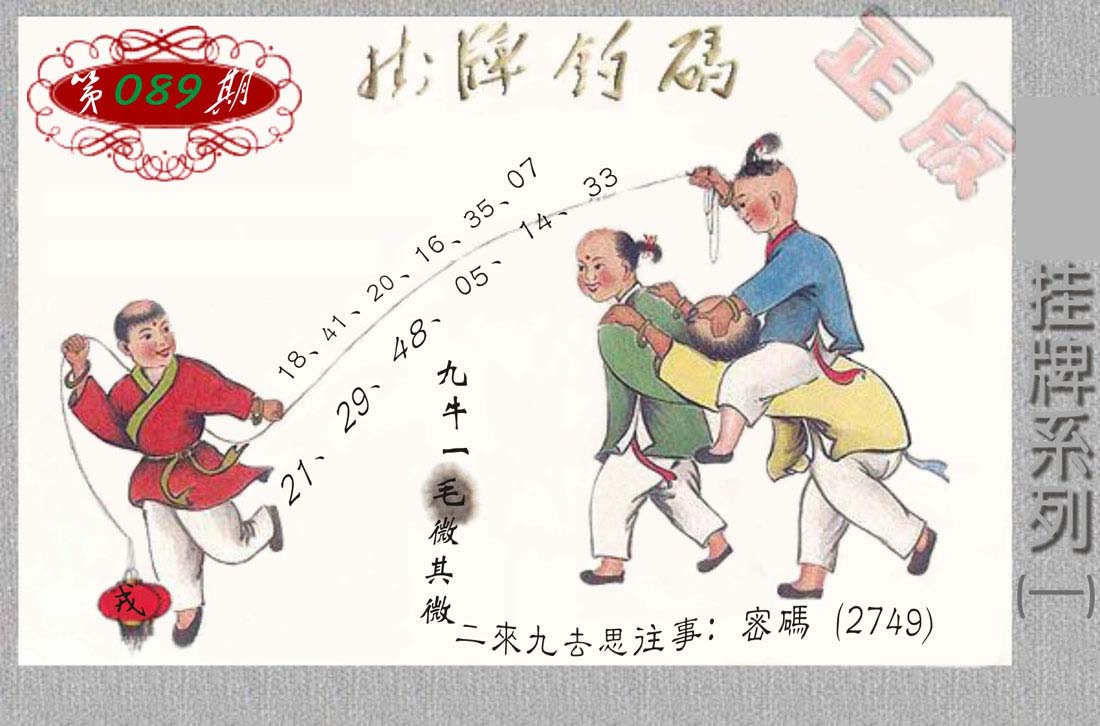 第089期
掛牌钓碼
正版
18、41、20、16、35、07
21、29、48、05、14、33
九牛一毛微其微
戎
二來九去思往事：密碼（2749）
挂牌系列(一)